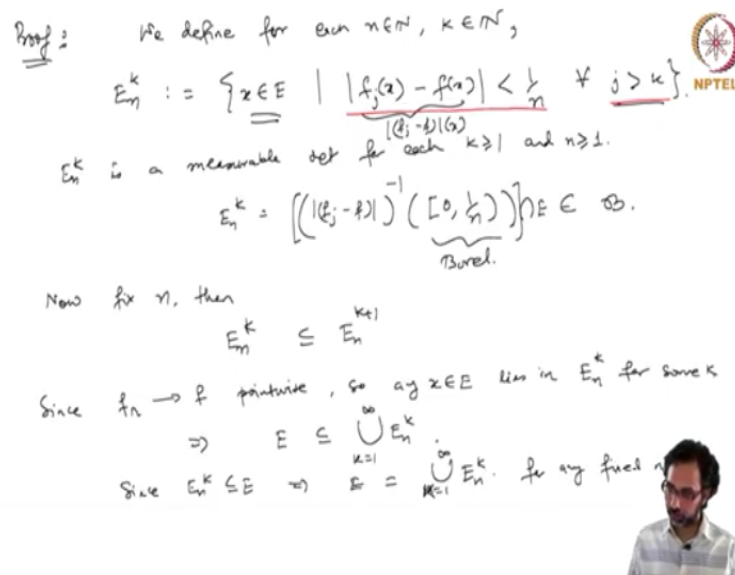 Proof : We define for each n∈ℕ, k∈ℕ,
E_n^k := { x∈E | |f_j(x) - f(x)| < 1/n ∀ j > k }.
|(f_j - f)|(x)
NPTEL
E_n^k is a measurable set for each k≥1 and n≥1.
E_n^k = [(|(f_j - f)|)^{-1} ([0, 1/n))] ∩ E ∈ ℬ.
Borel.
Now fix n, then
E_n^k ⊆ E_n^{k+1}
Since f_n → f pointwise, so any x∈E lies in E_n^k for some k
⇒ E ⊆ ⋃_{k=1}^∞ E_n^k.
Since E_n^k ⊆ E ⇒ E = ⋃_{k=1}^∞ E_n^k. for any fixed